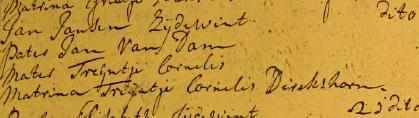 Matrina
dito
Jan Jansen Zijdewint
Pater Jan Van Dam
Mater Treijntje Cornelis
Matrina Treijntje Cornelis Dirckshorn.
Zijdewint 2 dito